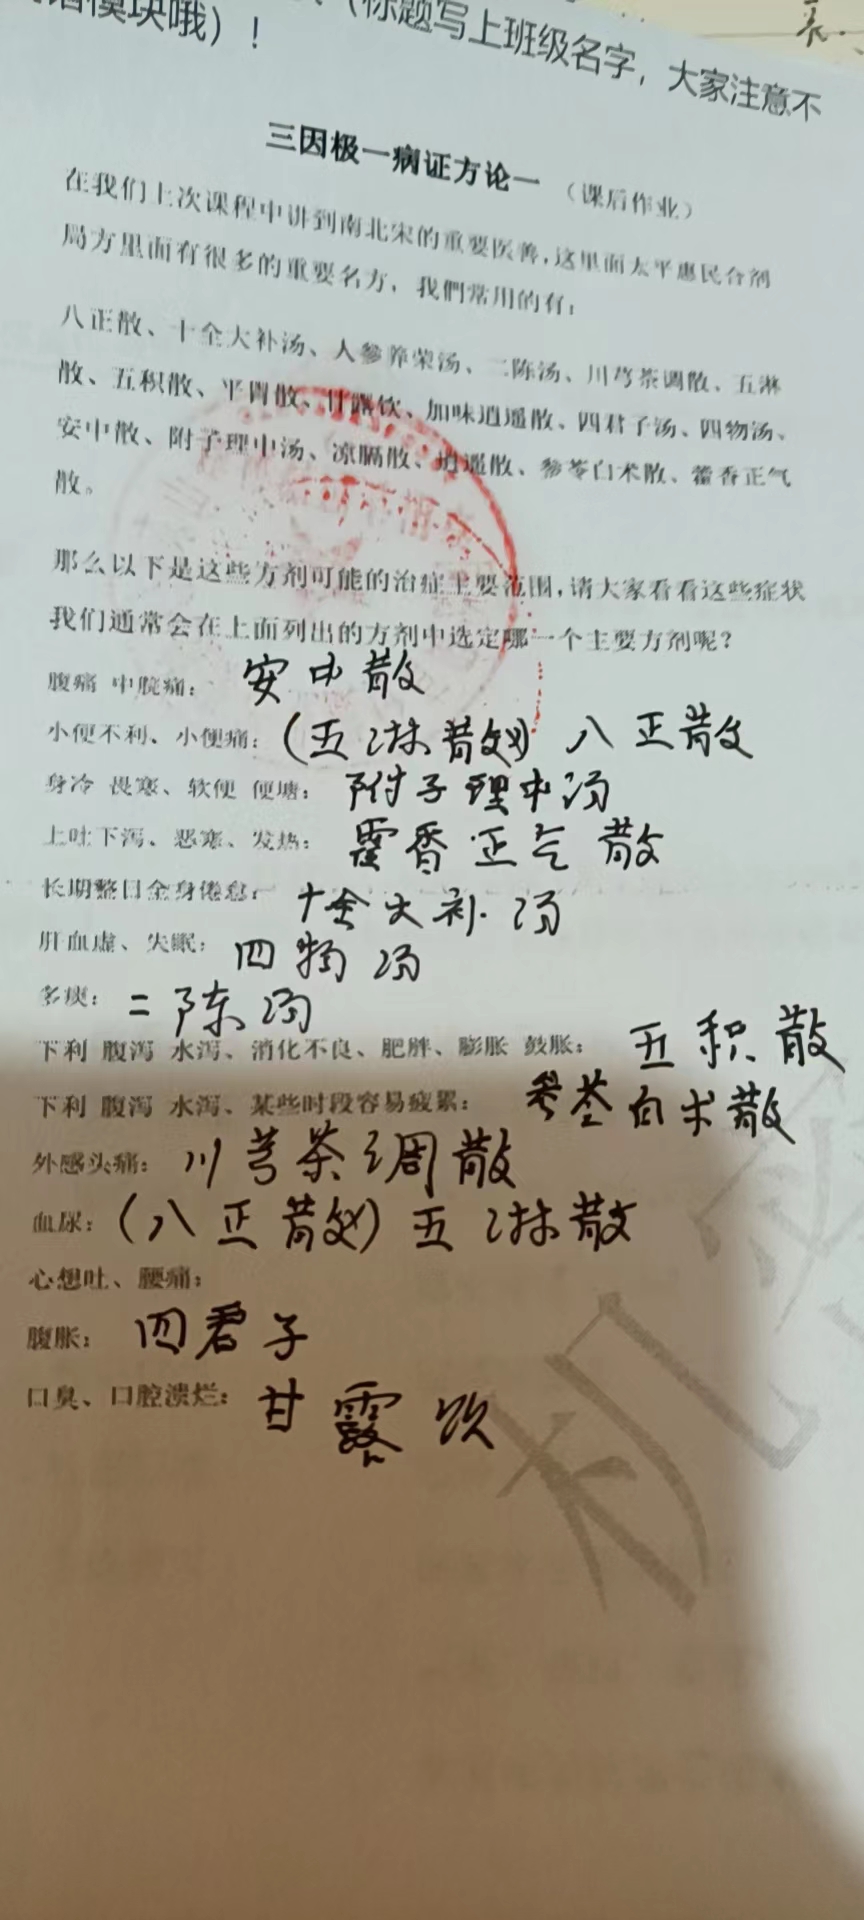 （标题写上班级名字，大家注意不
模块哦）！
三因极一病证方论一 （课后作业）
在我们上次课程中讲到南北宋的重要医善，这里面太平惠民合剂
局方里面有很多的重要名方，我們常用的有：
八正散、十全大补汤、人參养荣汤、二陈汤、川芎茶调散、五淋
散、五积散、平胃散、甘露饮、加味逍遥散、四君子汤、四物汤、
安中散、附子理中汤、凉膈散、逍遥散、参苓白术散、藿香正气
散。
那么以下是这些方剂可能的治症主要范围，请大家看看这些症状
我们通常会在上面列出的方剂中选定哪一个主要方剂呢？
腹痛 中脘痛： 安中散
小便不利、小便痛：（五淋散） 八正散
身冷 畏寒、软便 便塘： 附子理中汤
上吐下泻、恶寒、发热： 霍香正气散
长期整日全身倦怠： 十全大补汤
肝血虚、失眠： 四物汤
多痰： 二陈汤
下利 腹泻 水泻、消化不良、肥胖、膨胀 鼓胀： 五积散
下利 腹泻 水泻、某些时段容易疲累： 参苓白术散
外感头痛： 川芎茶调散
血尿：（八正散）五淋散
心想吐、腰痛：
腹胀： 四君子
口臭、口腔溃烂： 甘露饮
机密